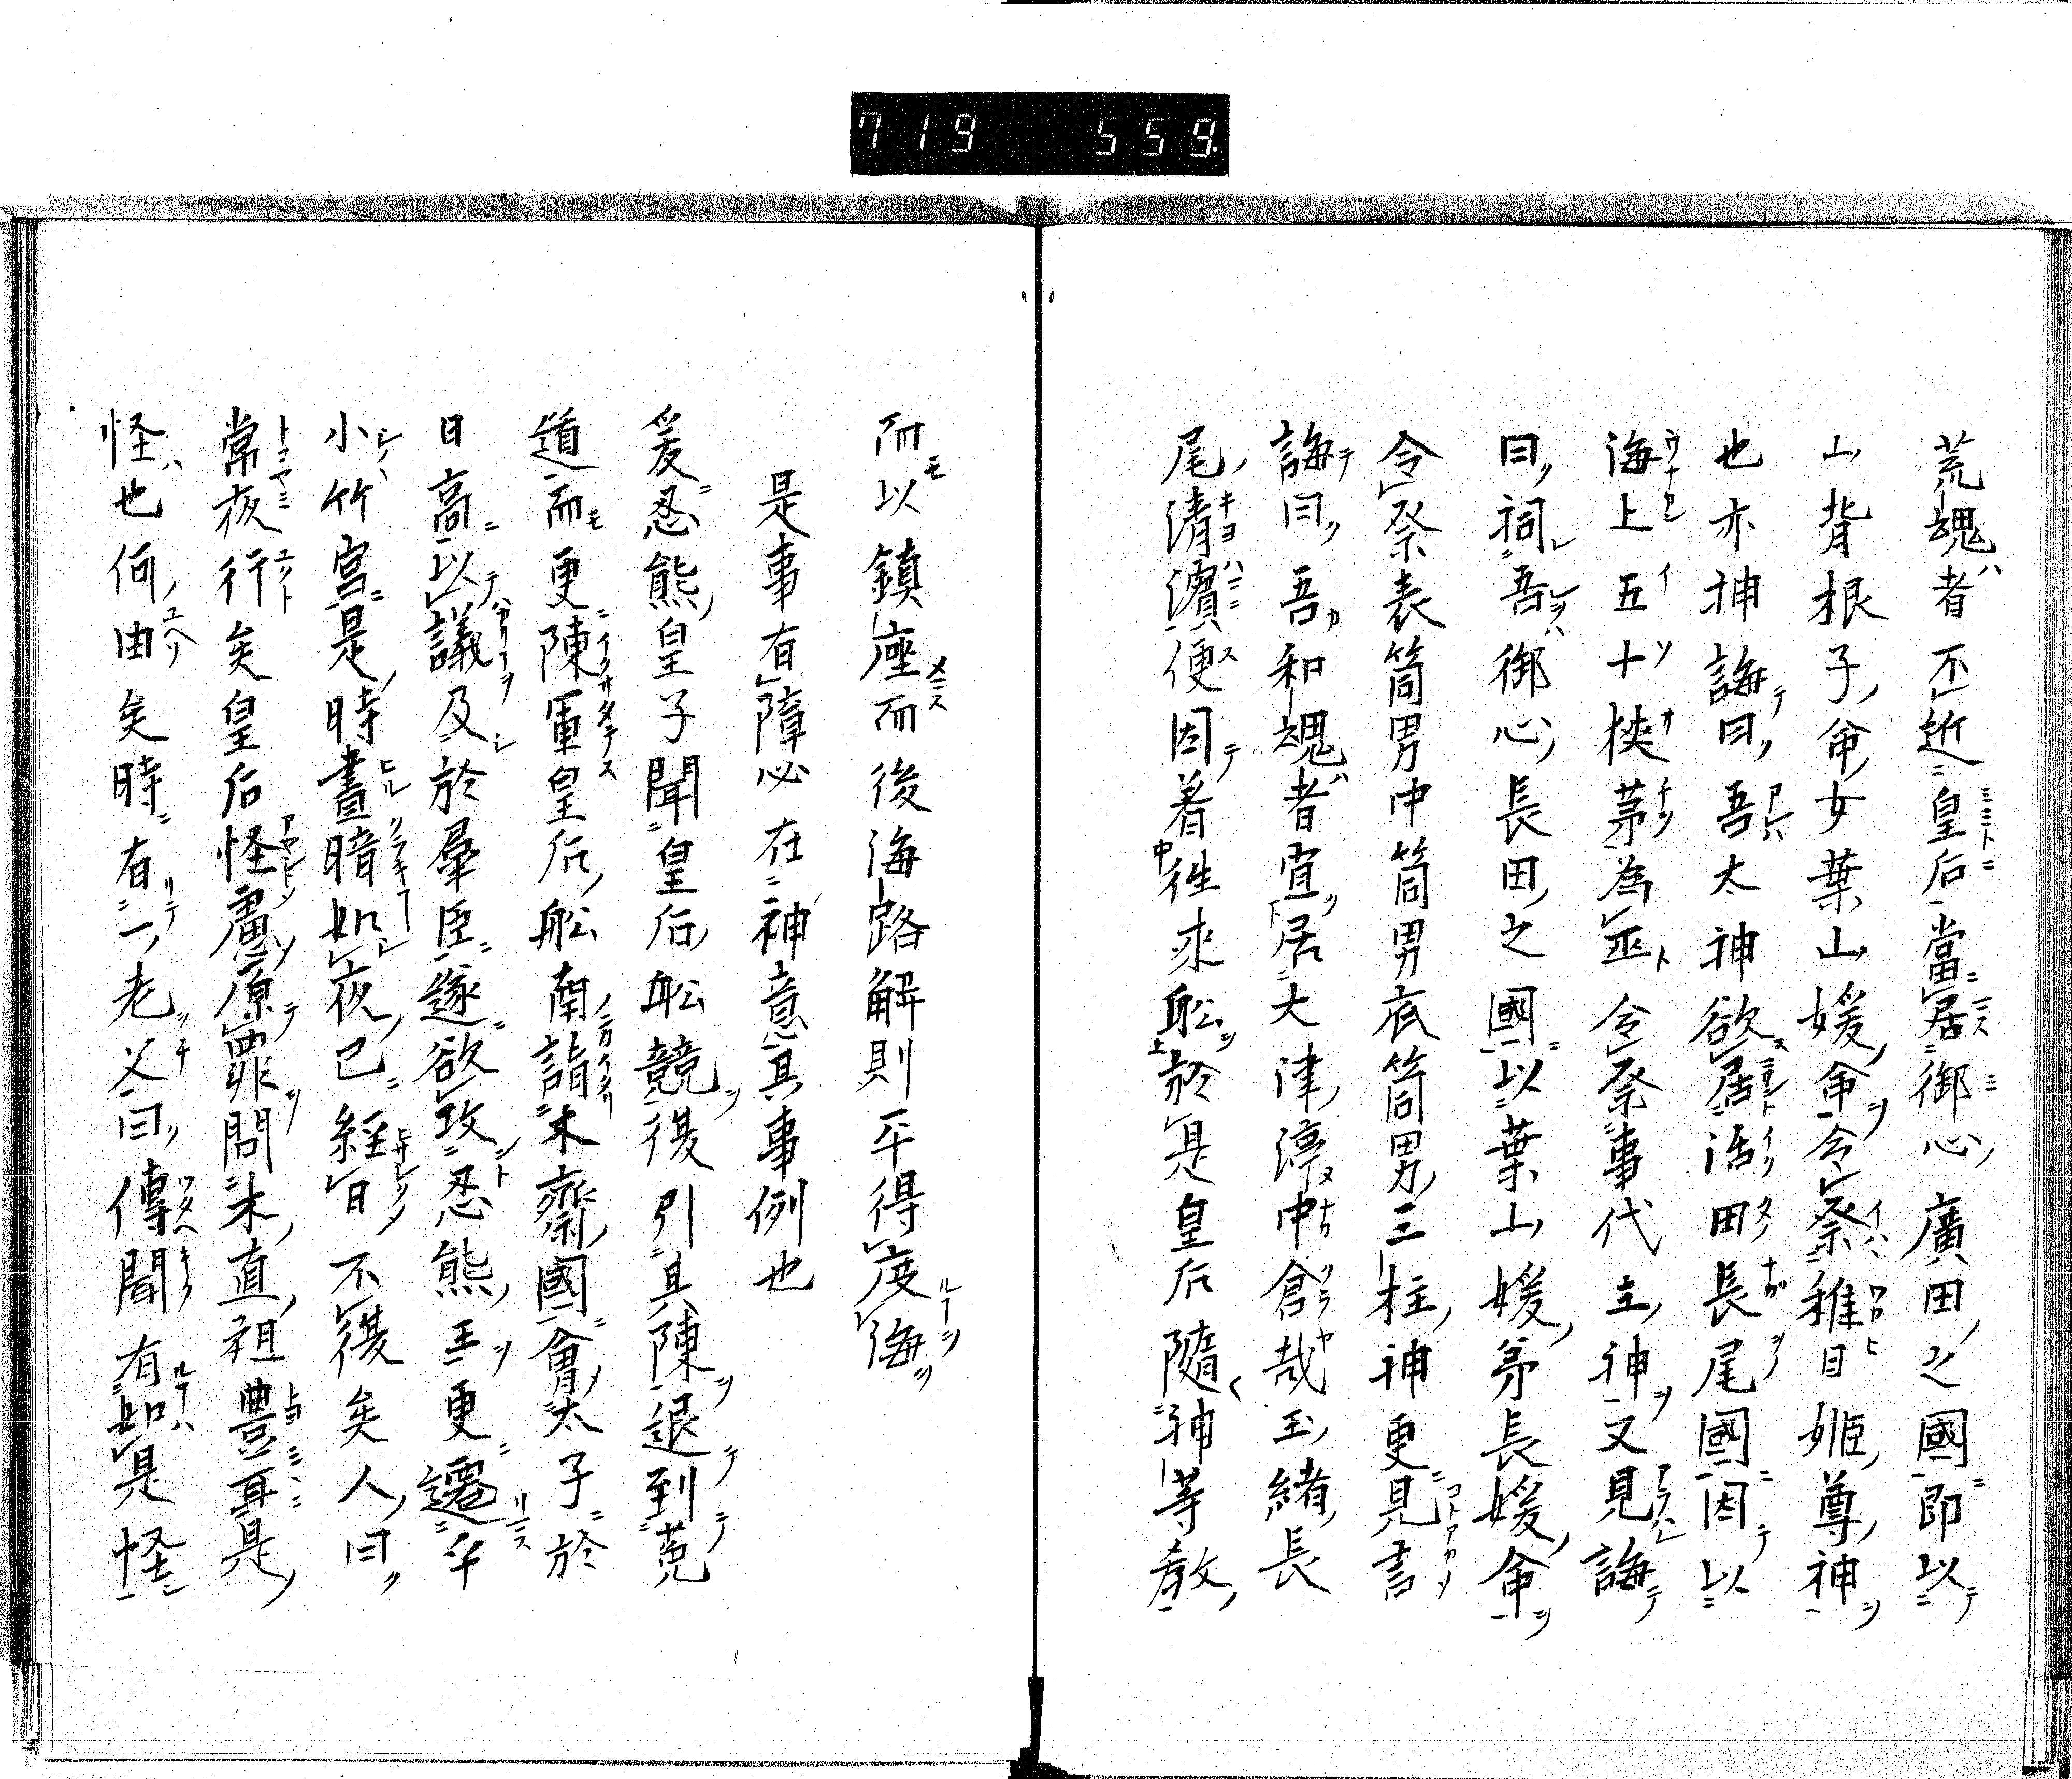 719 559.
荒魂者不近皇后當居御心廣田之國即以
山背根子命女葉山媛命令祭稚日姬尊神
也亦神誨曰吾太神欲居活田長尾國因以
海上五十挾茅為巫令祭事代主神又見誨
曰祠吾御心長田之國以葉山媛弟長媛命
令祭表筒男中筒男底筒男三柱神更見言
誨曰吾和魂者宜居大津渟中倉哉玉緒長
尾清濱便因着徃來舩於是皇后隨神等教
而以鎮座而後海路解則平得度海
是事有障必在神意其事例也
爰忍熊皇子聞皇后舩競復引其陳退到菟
道而更陳軍皇后舩南詣末齋國會太子於
日高以議及於羣臣遂欲攻忍熊王更遷于
小竹宮是時晝暗如夜已經日不復矣人曰
常夜行矣皇后怪慮原罪問末直祖豊耳是
怪也何由矣時有一老父曰傳聞有如是怪